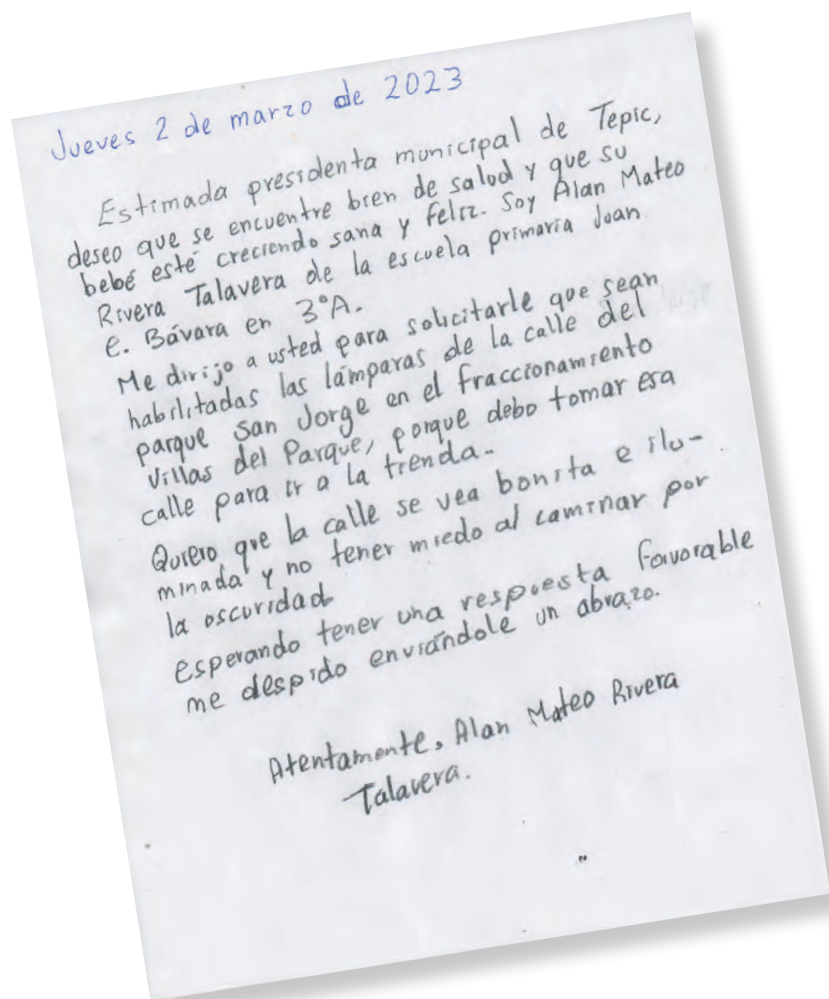 Jueves 2 de marzo de 2023
Estimada presidenta municipal de Tepic,
deseo que se encuentre bien de salud y que su
bebé esté creciendo sana y feliz. Soy Alan Mateo
Rivera Talavera de la escuela primaria Juan
E. Bávara en 3°A.
Me dirijo a usted para solicitarle que sean
habilitadas las lámparas de la calle del
parque San Jorge en el fraccionamiento
Villas del Parque, porque debo tomar esa
calle para ir a la tienda.
Quiero que la calle se vea bonita e ilu-
minada y no tener miedo al caminar por
la oscuridad
Esperando tener una respuesta favorable
me despido enviándole un abrazo.
Atentamente, Alan Mateo Rivera
Talavera.